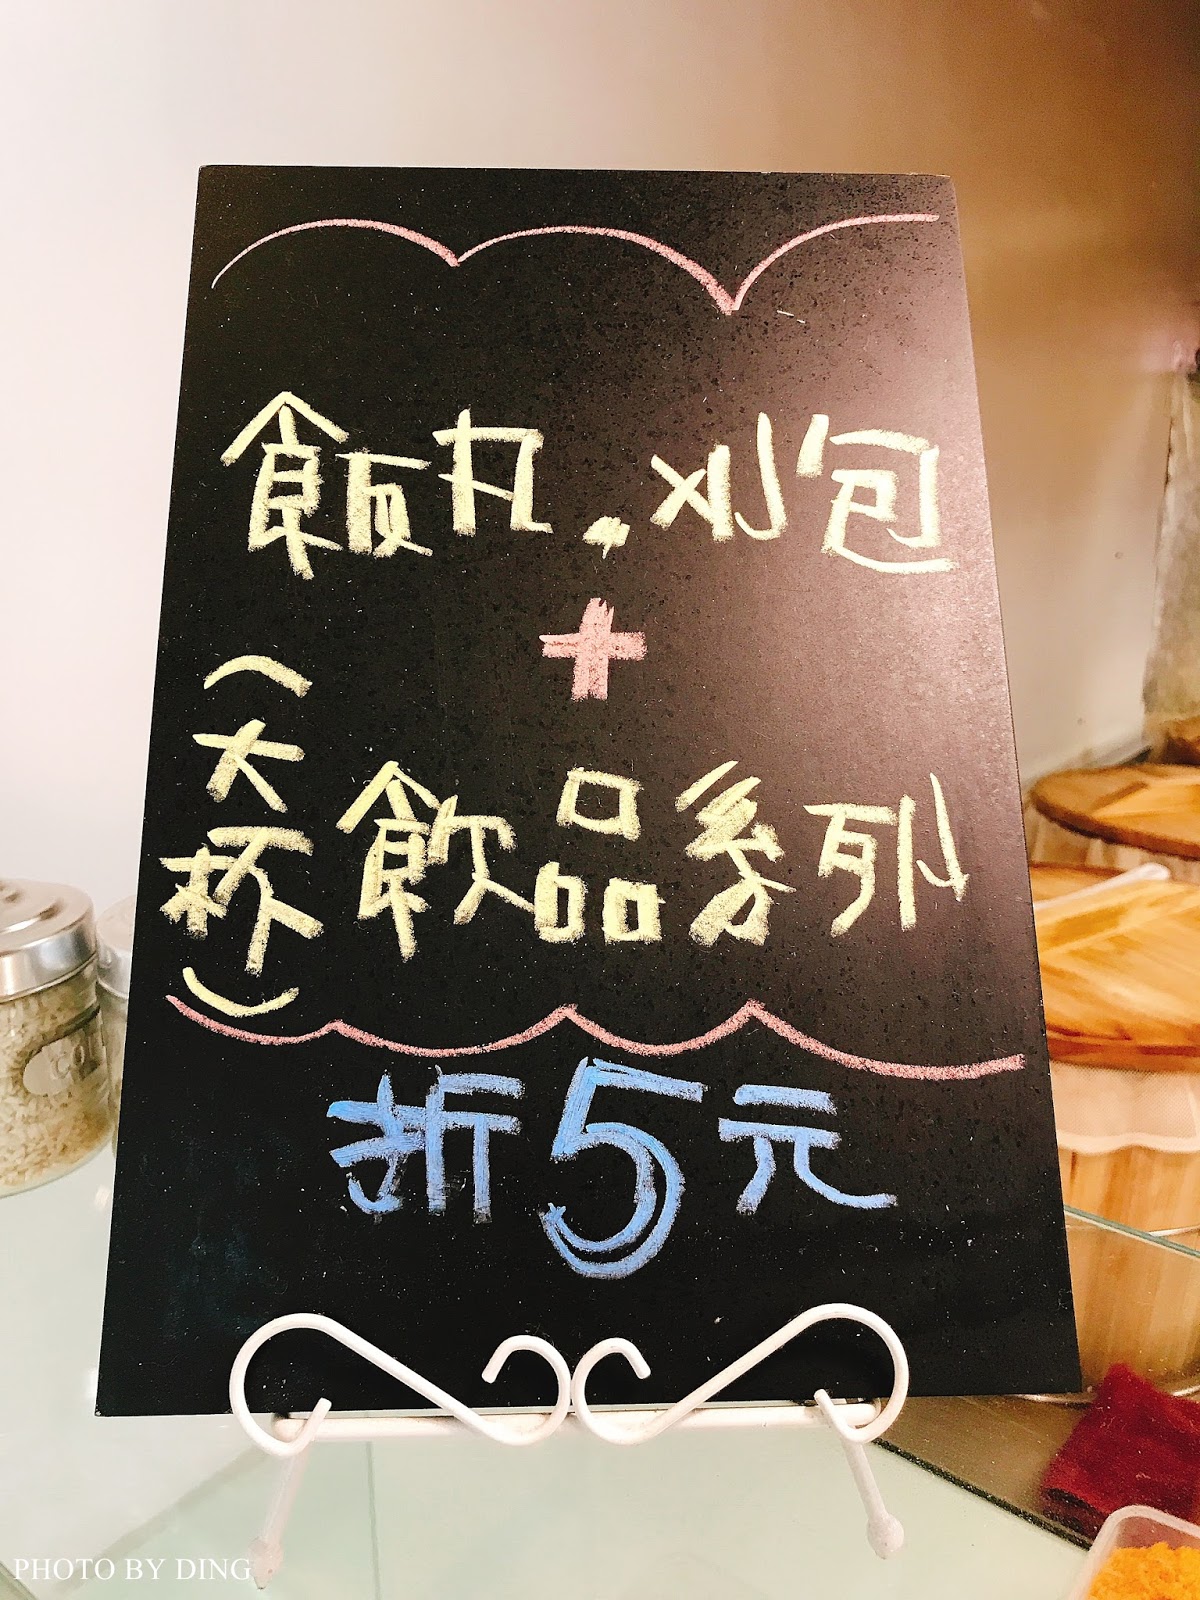 飯丸,刈包
+
(大杯)飲品系列
折5元
PHOTO BY DING